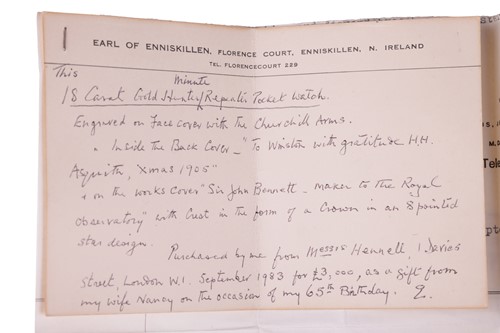 EARL OF ENNISKILLEN, FLORENCE COURT, ENNISKILLEN, N. IRELAND
TEL. FLORENCECOURT 229
This
Minute
18 Carat Gold Hunter/Repeater Pocket Watch.
Engraved on Face cover with the Churchill Arms.
" Inside the Back Cover — "To Winston with gratitude H.H.
Asquith, Xmas 1905"
& on the works cover "Sir John Bennett - maker to The Royal
Observatory" with Crest in the form of a Crown in an 8 pointed
star design.
Purchased by me from Messrs Hennell, 1 Davies
Street, London W.1. September 1983 for £3,000, as a gift from
my wife Nancy on the occasion of my 65th Birthday. E.